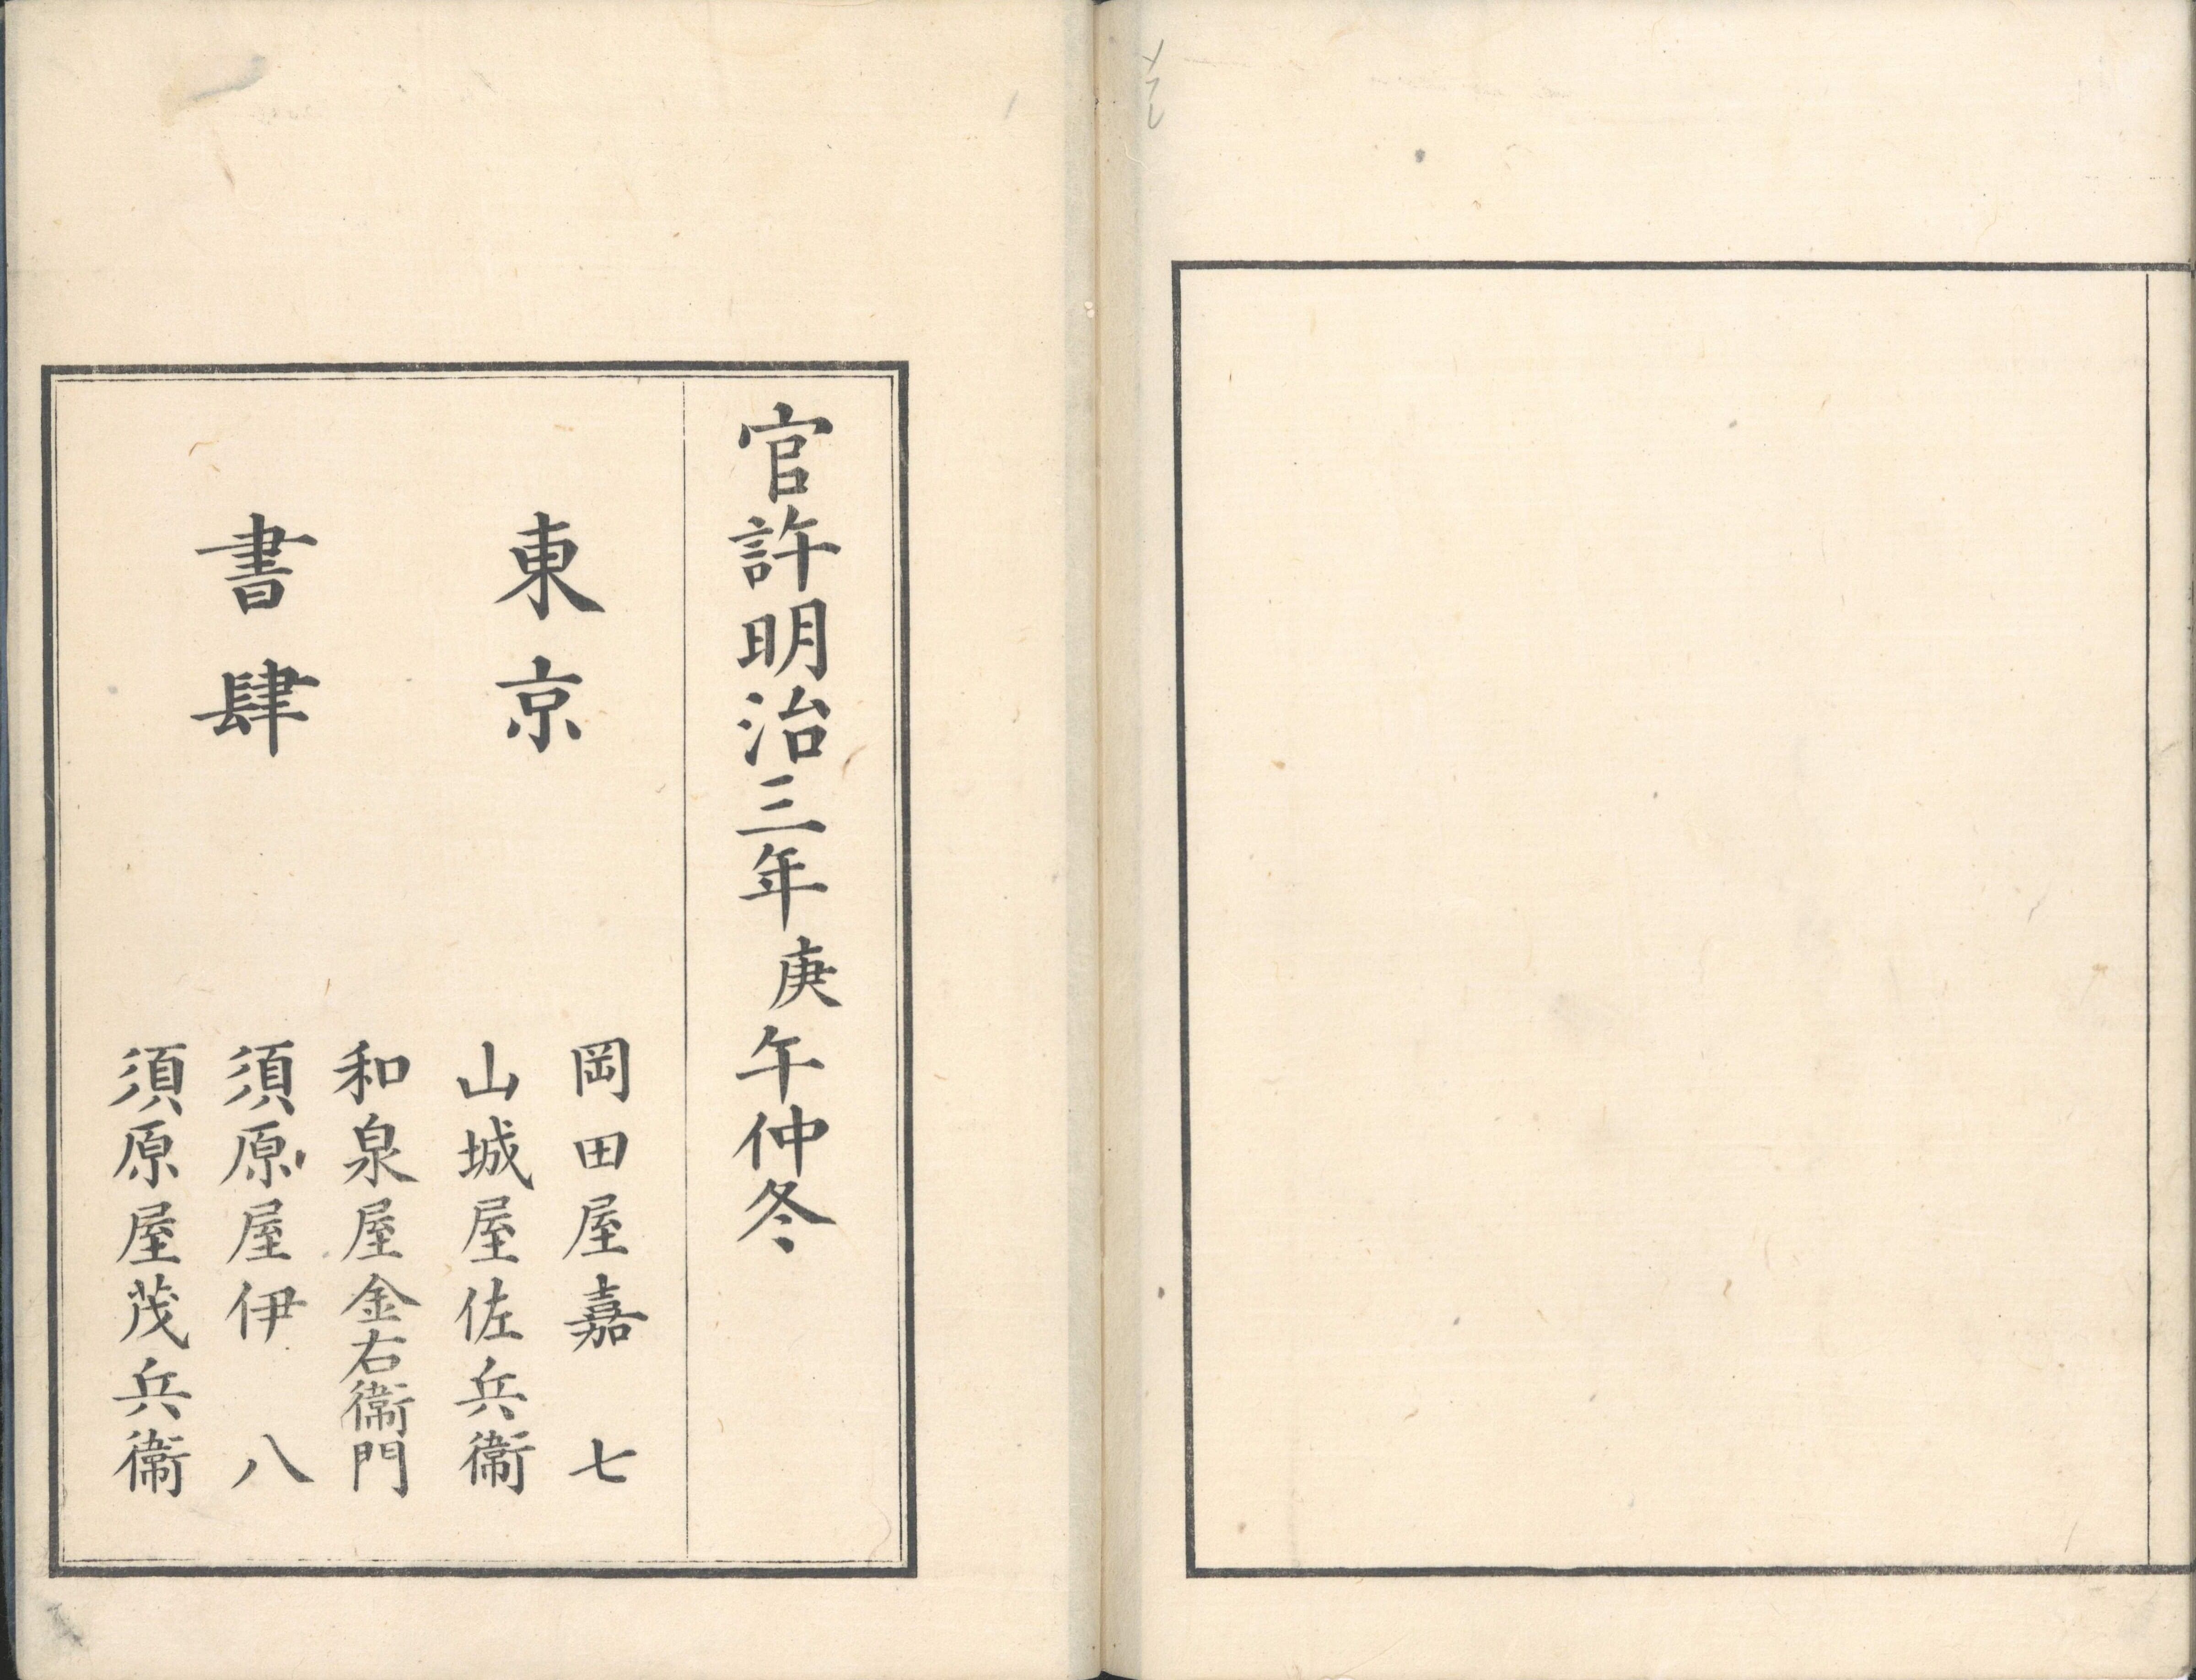 官許明治三年庚午仲冬
東京
書肆
岡田屋嘉七
山城屋佐兵衞
和泉屋金右衞門
須原屋伊八
須原屋茂兵衞